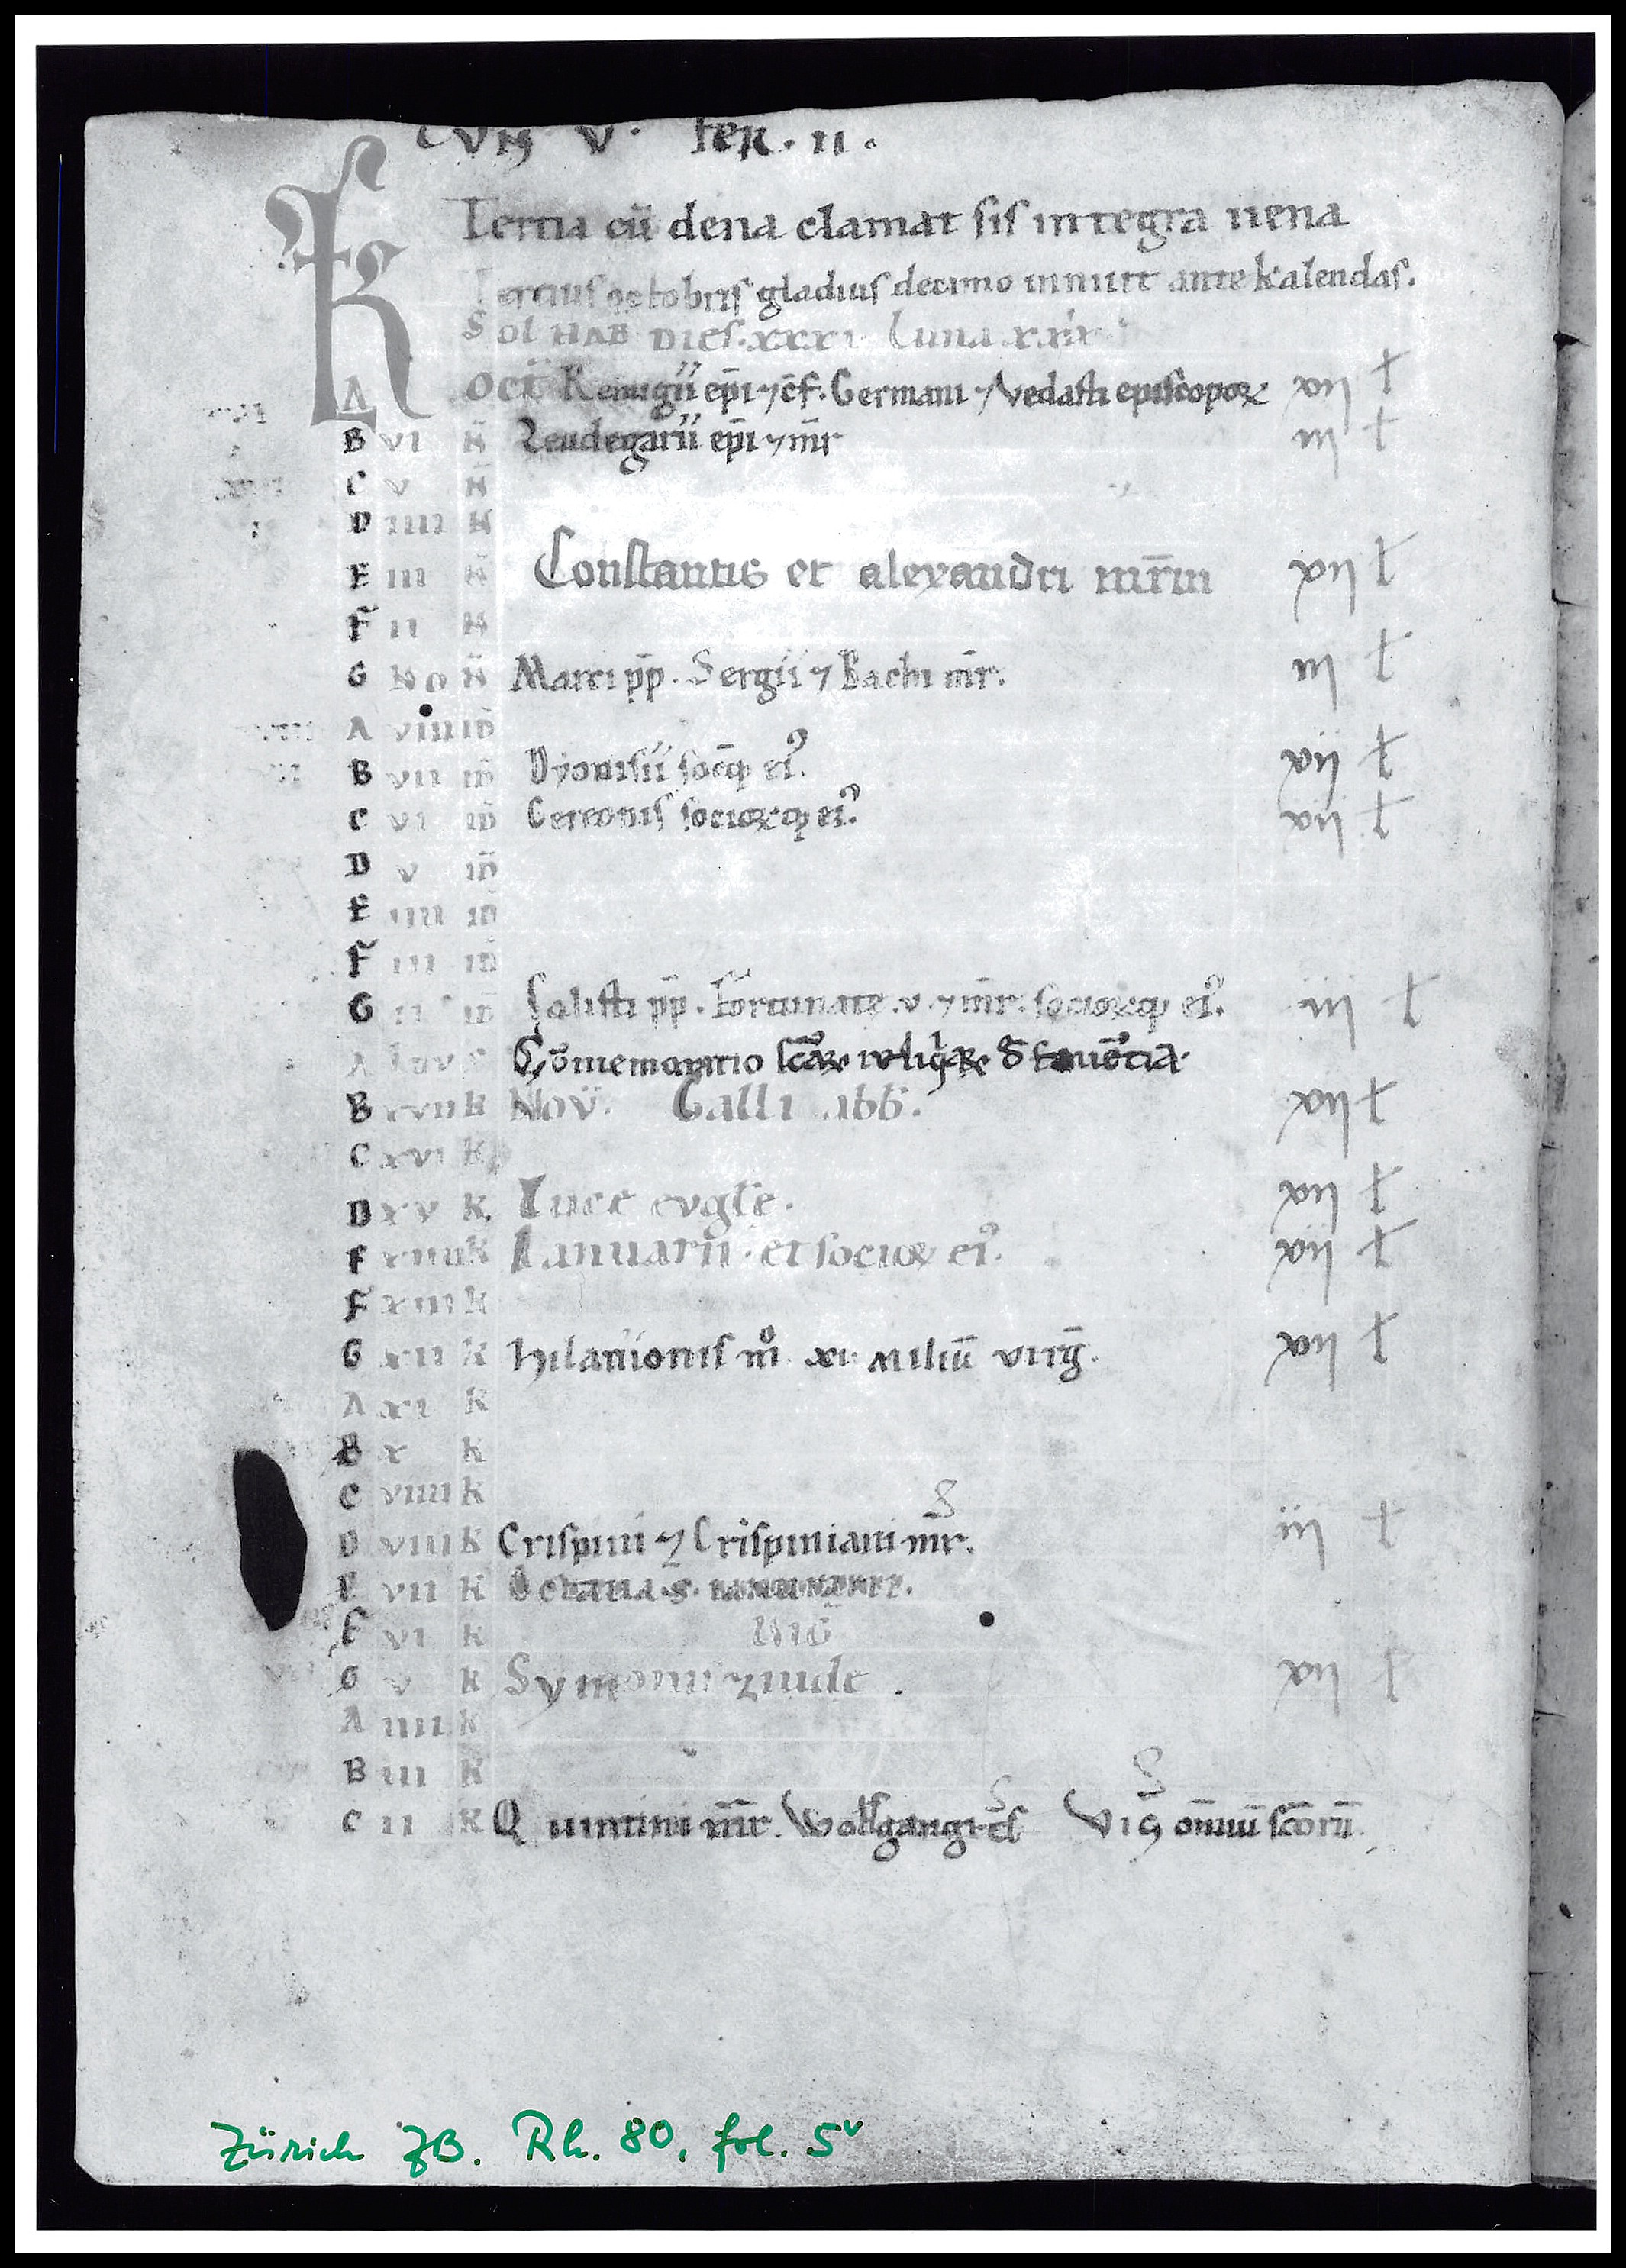 V. FER. II.
Tertia cū dena clamat sis integra uena
Tercius octobris gladius decimo innuit ante kalendas.
Sol HAB DIES. XXXI Luna XXIX
KL A OCT Remigii ep̄i ⁊ c̄f. Germani ⁊ Vedasti episcopoꝝ xii ł
B VI N̄ Leudegarii ep̄i ⁊ m̄r iii ł
C V N̄
D IIII N̄
E III N̄ Constantis et alexandri mr̄m
F II N̄
G NO N̄ Marci pp̄. Sergii ⁊ Bachi m̄r. iii ł
A VIII ID̄
B VII ID̄ Dyonisii socq̄ ei᾽. vii ł
C VI ID̄ Gereonis socioꝝq ei᾽.
D V ID̄
E IIII ID̄
F III ID̄
G II ID̄ Calisti pp̄. Fortunate. v. ⁊ m̄r. socioꝝq ei᾽. iii ł
A Cōmemoratio
B XVII K Nov̄. Galli abb̄.
C XVI K
D XV K. Luce evgl̄e.
E XIIII K Ianuarii. et socioꝝ ei᾽.
F XIII K
G XII K hilarionis m̊. xi. miliū virḡ.
A XI K
B X K
C VIIII K
D VIII K Crispini ⁊ Crispiniani m̄r. iii ł
E VII K
F VI K
G V K Symonis ⁊ iude.
A IIII K
B III K
C II K Quintini m̄r. Wolfgangi c̄f Vig om̄iū sc̄orū.
Zürich ZB. Rh. 80, fol. 5v